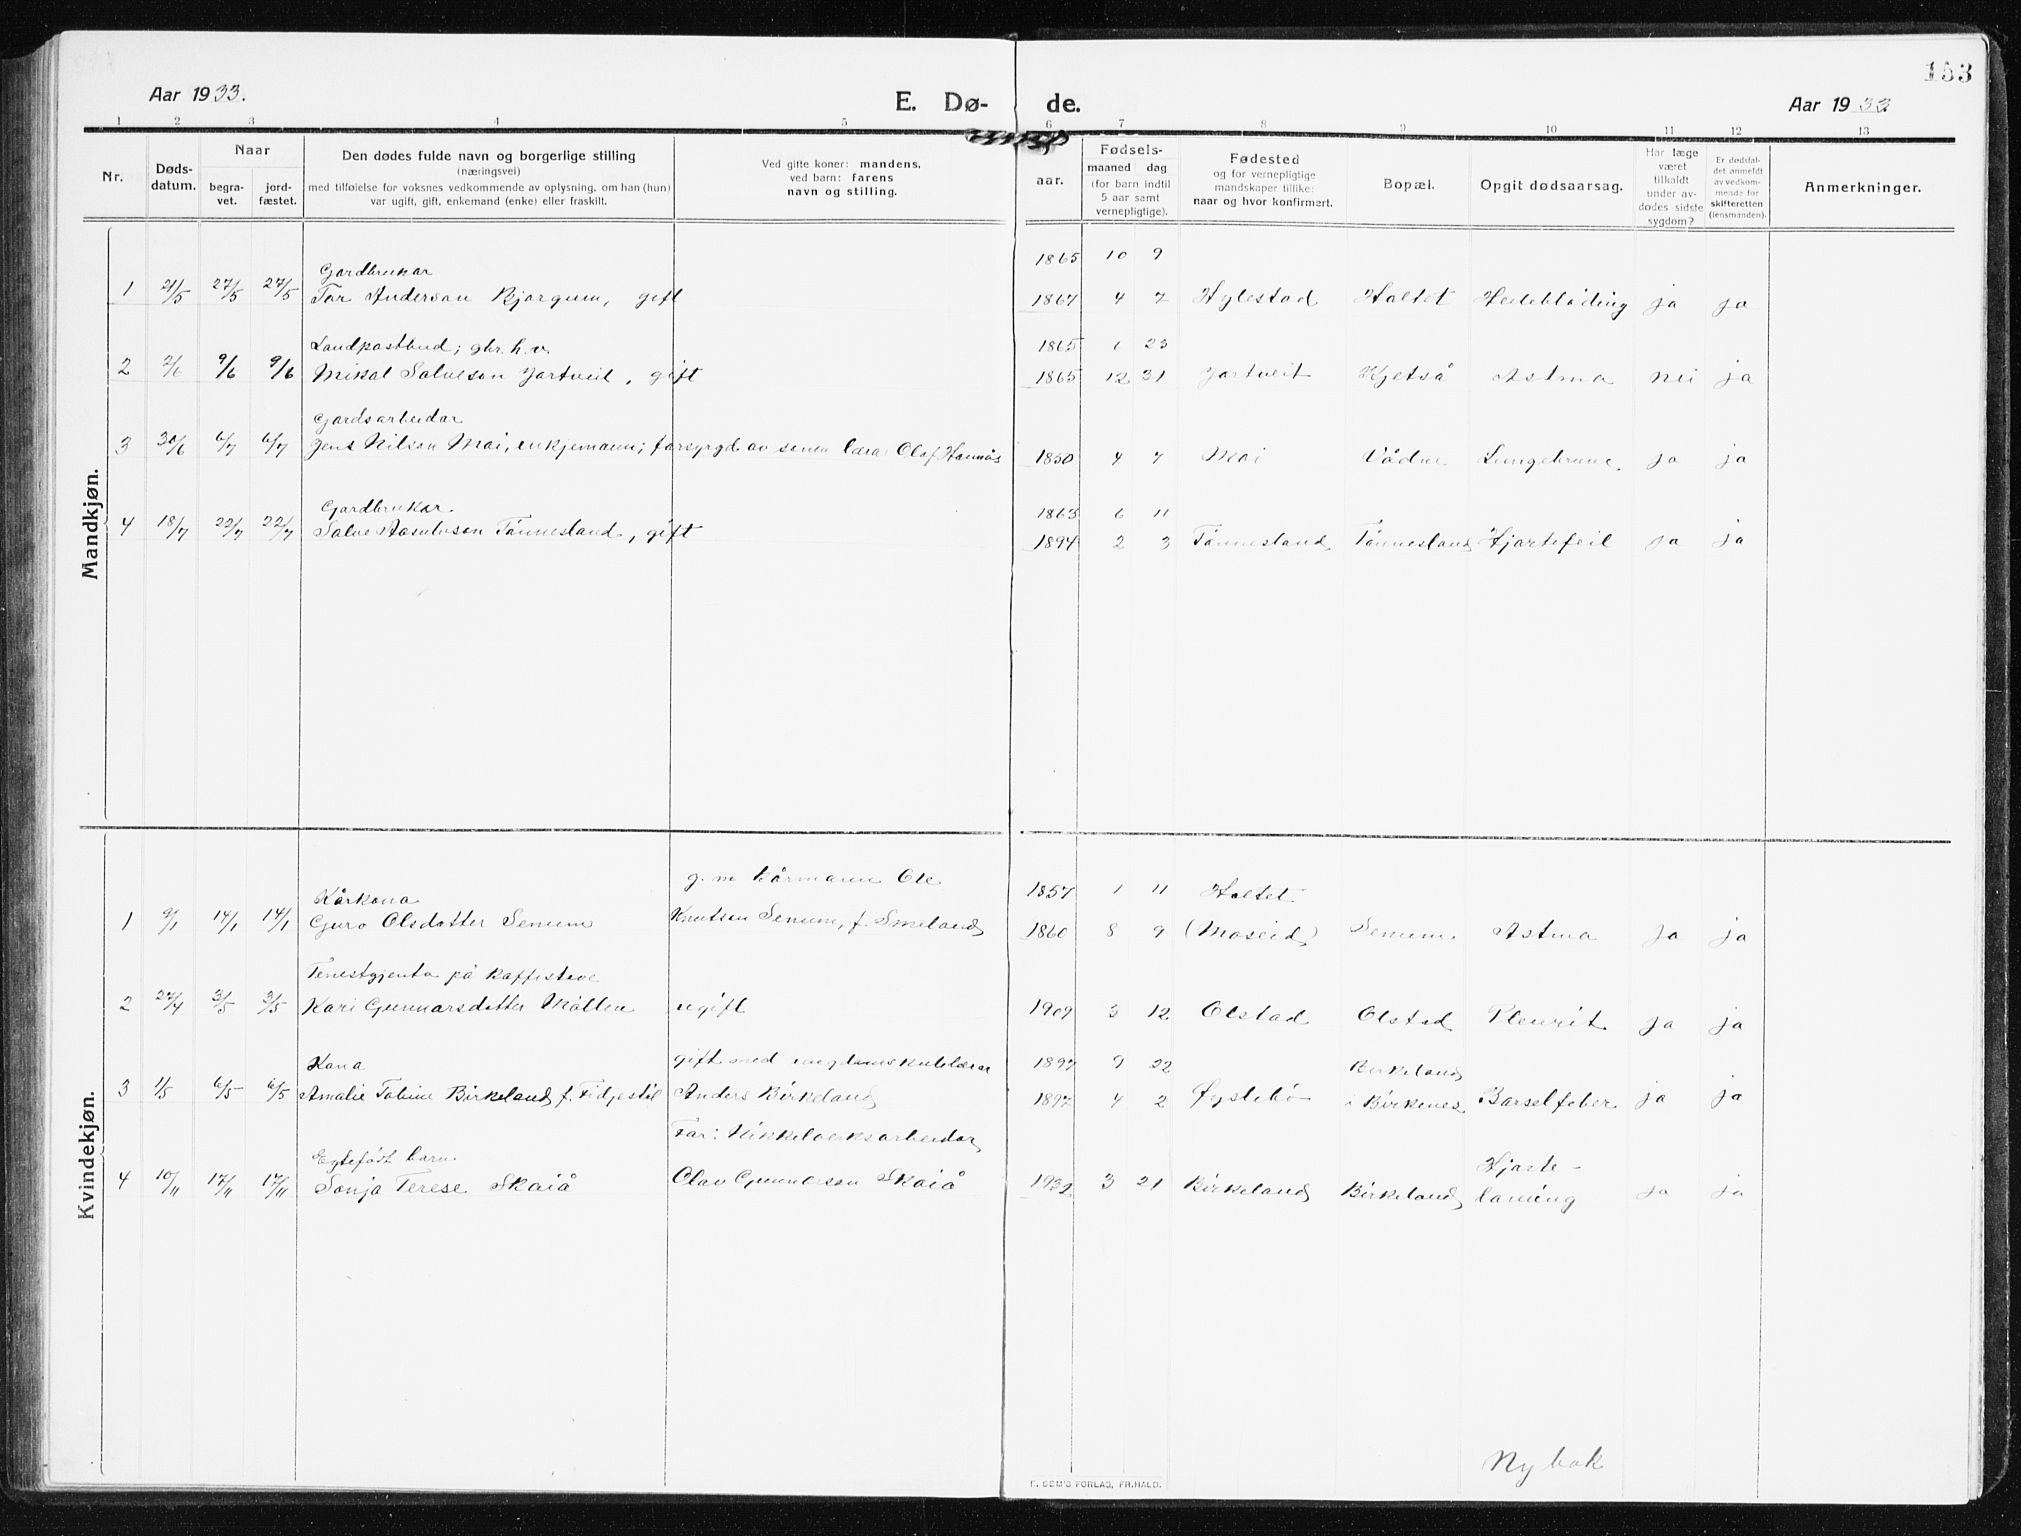 153
Aar 1933.
E. Dø-
de.
Aar 1933
1 2 3 4 5 6 7 8 9 10 11 12 13
Nr.
Døds-
datum.
Naar
begra-
vet.
jord-
fæstet.
Den dødes fulde navn og borgerlige stilling
(næringsvei)
med tilføielse for voksnes vedkommende av oplysning, om han (hun)
var ugift, gift, enkemand (enke) eller fraskilt.
Ved gifte koner: mandens,
ved barn: farens
navn og stilling.
Fødsels-
aar.
maaned dag
(for barn indtil
5 aar samt
vernepligtige).
Fødested
og for vernepligtige
mandskaper tillike:
naar og hvor konfirmert.
Bopæl.
Opgit dødsaarsag.
Har læge
været
tilkaldt
under av-
dødes sidste
sygdom?
Er dødsfal-
det anmeldt
av vedkom-
mende for
skifteretten
(lensmanden).
Anmerkninger.
Mandkjøn.
Gardbrukar 1865 10 9
1 21/5 27/5 27/5 Tor Anderson Bjorgum, gift 1867 4 7 Hylestad Holtet Heilebløding ja ja
Landpostbud; gbr. h.v. 1865 1 23
2 2/6 9/6 9/6 Mikal Salveson Jortveit, gift 1865 12 31 Jortveit Kjetså Astma nei ja
Gardsarbeidar
3 30/6 6/7 6/7 Jens Nilson Moi, enkjemann; forsyrgd av sonen lærar Olaf Homnes 1850 4 7 Moi Vådne Lungebrune. ja ja
Gardbrukar 1863 6 11
4 18/7 22/7 22/7 Salve Aasulvson Tønnesland, gift 1894 2 3 Tønnesland Tønnesland Hjartefeil ja ja
Kvindekjøn.
Kårkona g. m kårmann Ole 1857 1 11 Holtet
1 9/1 14/1 14/1 Guro Olsdotter Senum Knutson Senum, f. Smeland 1860 8 9 (Moseid) Senum. Astma ja ja
Tenestgjenta på kaffistove
2 27/4 3/5 3/5 Kari Gunnarsdotter Mollen ugift 1909 3 12 Olstad Olstad Pleurit. ja ja
Kona gift med ungdomskulelærar 1897 9 22 Birkeland
3 1/5 6/5 6/5 Amalie Tobine Birkeland f. Fidjestøl Anders Birkeland 1897 4 2 Øyslebø i Birkenes Barselfeber ja ja
Egtefødt barn. Far: Nikkelverksarbeidar Hjarte-
4 10/11 17/11 17/11 Sonja Terese Skaiå Olav Gunnarson Skaiå 1932 3 21 Birkeland Birkeland laming ja ja
Ny bok
E. SEM'S FORLAG, FR.HALD.